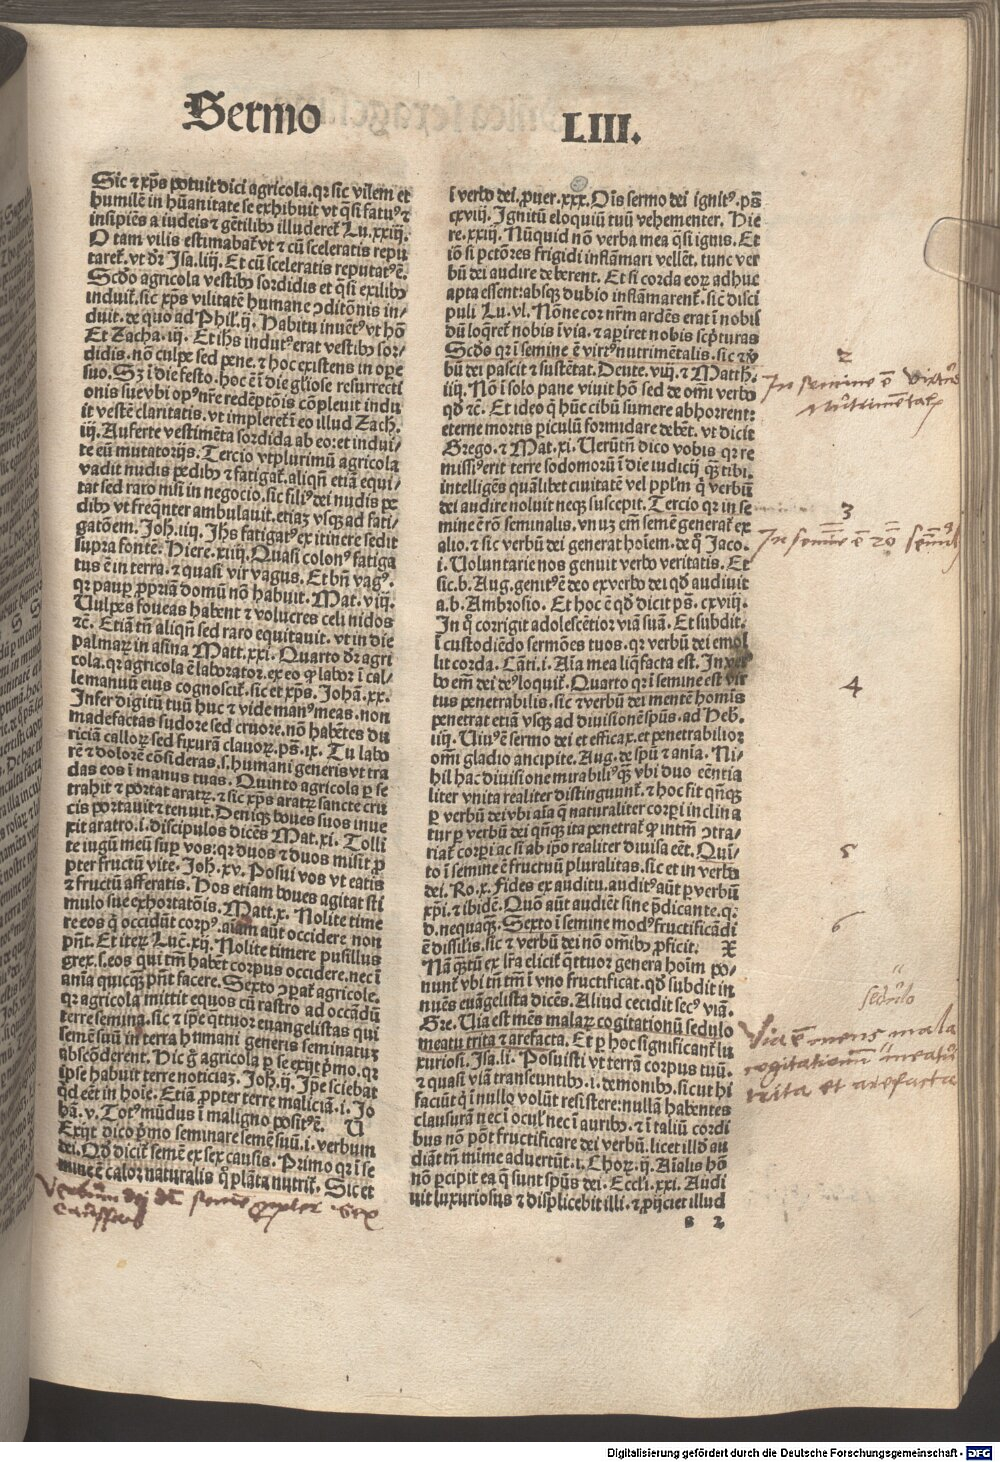 Sermo LIII.
Sic ⁊ xp̄s potuit dici agricola. qr sic vilem et
humilē in hūanitate se exhibuit vt q̄si fatuꝰ ⁊
insipiēs a iudeis ⁊ gētilibꝰ illuderet̄ Lu. xxiij.
O tam vilis estimabat̄ vt ⁊ cū sceleratis repu
taret̄. vt dr̄ Isa. liij. Et cū sceleratis reputatꝰ ē.
Scd̄o agricola vestibꝰ sordidis et q̄si exilibꝰ
induit̄. sic xp̄s vilitatē humane ↄditōnis in/
duit. de quo ad Phil̄. ij. Habitu inuētꝰ vt hō
Et Zacha. iij. Et ih̄s indutꝰ erat vestibꝰ sor/
didis. nō culpe sed pene. ⁊ hoc existens in ope
suo. Sꝫ ī die festo. hoc ē ī die gl̄iose resurrecti
onis sue vbi opꝰ nr̄e redēptōis cōpleuit indu
it vestē claritatis. vt impleret̄ ī eo illud Zach.
iij. Auferte vestimēta sordida ab eo: et indui/
te eū mutatorijs. Tercio vt plurimū agricola
vadit nudis pedibꝰ ⁊ fatigat̄. aliqn̄ etiā equi/
tat sed raro nisi in negocio. sic filiꝰ dei nudis pe
dibꝰ vt freq̄nter ambulauit. etiaꝫ vsqꝫ ad fati/
gatōem. Joh. iiij. Jh̄s fatigatꝰ ex itinere sedit
supra fontē. Hiere. xiiij. Quasi colonꝰ fatiga
tus ē in terra. ⁊ quasi vir vagus. Et bn̄ vagꝰ.
qr paup ꝓpriā domū nō habuit. Mat. viij.
Vulpes foueas habent ⁊ volucres celi nidos
⁊c̄. Etiā tn̄ aliqn̄ sed raro equitauit. vt in die
palmaꝝ in asina Matt. xxi. Quarto dr̄ agri
cola. qr agricola ē laborator. ex eo ꝙ labor ī cal/
le manuū eius cognoscit̄. sic et xp̄s. Johā. xx.
Infer digitū tuū huc ⁊ vide manꝰ meas. non
madefactas sudore sed cruore. nō habētes du
riciā calloꝝ sed fixurā clauoꝝ. ps̄. ix. Tu labo
rē ⁊ dolorē cōsideras. s. humani generis vt tra
das eos ī manus tuas. Quinto agricola ꝑ se
trahit ⁊ portat aratꝝ. ⁊ sic xp̄s aratꝝ sancte cru
cis portauit ⁊ tenuit. Deniqꝫ boues suos inue
xit aratro. i. discipulos dicēs Mat. xi. Tolli
te iugū meū sup vos: qr duos ⁊ duos misit ꝓ
pter fructū vite. Joh. xv. Posui vos vt eatis
⁊ fructū afferatis. Hos etiam boues agitat sti
mulo sue exhortatōis. Matt. x. Nolite time
re eos q̄ occidūt corpꝰ. aīam aūt occidere non
pn̄t. Et iteꝝ Luc̄. xij. Nolite timere pusillus
grex. s. eos qui tm̄ habēt corpus occidere. nec ī
anīa quicqꝫ pn̄t facere. Sexto ↄparat̄ agricole.
qr agricola mittit equos cū rastro ad occādū
terre semina. sic ⁊ ip̄e q̄ttuor euangelistas qui
semē suū in terra humani generis seminatuꝫ
absc̄onderent. Hic ḡ agricola ꝑ se exijt p̄mo. qr
ip̄se habuit terre noticiaꝫ. Joh. ij. Ip̄e sciebat
qd eēt in hoīe. Etiā ꝓpter terre maliciā. i. Jo
hā. v. Totꝰ mūdus ī maligno positꝰ ē. U
Exijt dico p̄mo seminare semē suū. i. verbum
dei. Qd̄ dicit̄ semē ex sex causis. Primo qr ī se
mine ē calor naturalis q̄ plāta nutrit̄. Sic et
Verbum dei dr̄ semē propter sex
causas
ī verbo dei. ꝓuer. xxx. Oīs sermo dei ignitꝰ. ps̄
cxviij. Ignitū eloquiū tuū vehementer. Hie
re. xxiij. Nūquid nō verba mea q̄si ignis. Et
iō si pctōres frigidi inflamari vellēt. tunc ver
bū dei audire deberent. Et si corda eoꝝ adhuc
apta essent: absqꝫ dubio inflāmarent̄. sic̄ disci
puli Lu. vl. Nōne cor nr̄m ardēs erat ī nobis
dū loq̄ret̄ nobis ī via. ⁊ aꝑiret nobis scp̄turas
Scd̄s qr ī semine ē virtꝰ nutrimētalis. sic ⁊ v̄
bū dei pascit ⁊ sustētat. Deute. viij. ⁊ Matth.
iiij. Nō ī solo pane viuit hō sed de om̄i verbo
qd̄ ⁊c̄. Et ideo q̄ hūc cibū sumere abhorrent:
eterne mortis ꝑiculū formidare debēt. vt dicit
Grego. ⁊ Mat. xi. Uerūtn̄ dico vobis qr re
missiꝰ erit terre sodomorū ī die iudicij qꝫ tibi.
intelligēs quālibet ciuitatē vel ppl̄m q̄ verbū
dei audire noluit neqꝫ suscepit. Tercio qr in se
mine ē rō seminalis. vnuꝫ em̄ semē generat̄ ex
alio. ⁊ sic verbū dei generat hoīem. de q̄ Jaco.
i. Uoluntarie nos genuit verbo veritatis. Et
sic. b. Aug. genitꝰ ē deo ex verbo dei qd̄ audiuit
a. b. Ambrosio. Et hoc ē qd̄ dicit ps̄. cxviij.
In q̄ corrigit adolescētior viā suā. Et subdit.
ī custodiēdo sermōes tuos. qr verbū dei emol
lit corda. Cāti. i. Aīa mea liq̄facta est. In ver
bo em̄ dei deꝰ loquit̄. Quarto qr ī semine est vir
tus penetrabilis. sic ⁊ verbū dei mentē hominis
penetrat etiā vsqꝫ ad diuisionē spūs. ad Heb.
iiij. Uiuꝰ ē sermo dei et efficax. et penetrabilior
om̄i gladio ancipite. Aug. de spū ⁊ anīa. Ni/
hil hac diuisione mirabiliꝰ qꝫ vbi duo eēntia
liter vnita realiter distinguunt̄. ⁊ hoc fit qn̄qꝫ
ꝑ verbū dei vbi aīa q̄ naturaliter corpi inclina
tur ꝑ verbū dei qn̄qꝫ ita penetrat̄ ꝙ intm̄ ↄtra/
riat̄ corpi ac si ab ip̄o realiter diuisa eēt. Quī/
to ī semine ē fructuū pluralitas. sic et in verbo
dei. Ro. x. Fides ex auditu. auditꝰ aūt ꝑ verbū
xp̄i. ⁊ ibidē. Quō aūt audiēt sine p̄dicante. q.
d. nequaqꝫ. Sexto ī semine modꝰ fructificādi
ē dissilis. sic ⁊ verbū dei nō om̄ibꝰ ꝓficit. X
Nā qꝫtū ex lr̄a elicit̄ q̄ttuor genera hoīm po/
nunt̄ vbi tm̄ ī vno fructificat. qd̄ subdit in
nuēs euāgelista dicēs. Aliud cecidit secꝰ viā.
Gre. Uia est mēs malaꝝ cogitationū sedulo
meatu trita ⁊ arefacta. Et ꝑ hoc significant̄ lu
xuriosi. Isa. li. Posuisti vt terrā corpus tuū.
⁊ quasi viā transeuntibꝰ. i. demonibꝰ. sicut hi
faciūt q̄ ī nullo volūt resistere: nullā habentes
clausurā nec ī ocul̄ nec ī auribꝰ. ⁊ ī taliū cordi
bus nō pōt fructificare dei verbū. licet illd̄ au
diāt tn̄ mīme aduertūt. i. Choꝝ. ij. Aīalis hō
nō percipit ea q̄ sunt spūs dei. Eccl̄i. xxi. Audi
uit luxuriosus ⁊ displicebit illi. ⁊ ꝓijciet illud
s 2
2
In semine ē virtus
Nutrimentalis
3
In semine ē rō seminalis
4
5
6
sedulo
Via ē mens mala
cogitationum meatu
trita et arefacta
Digitalisierung gefördert durch die Deutsche Forschungsgemeinschaft - DFG